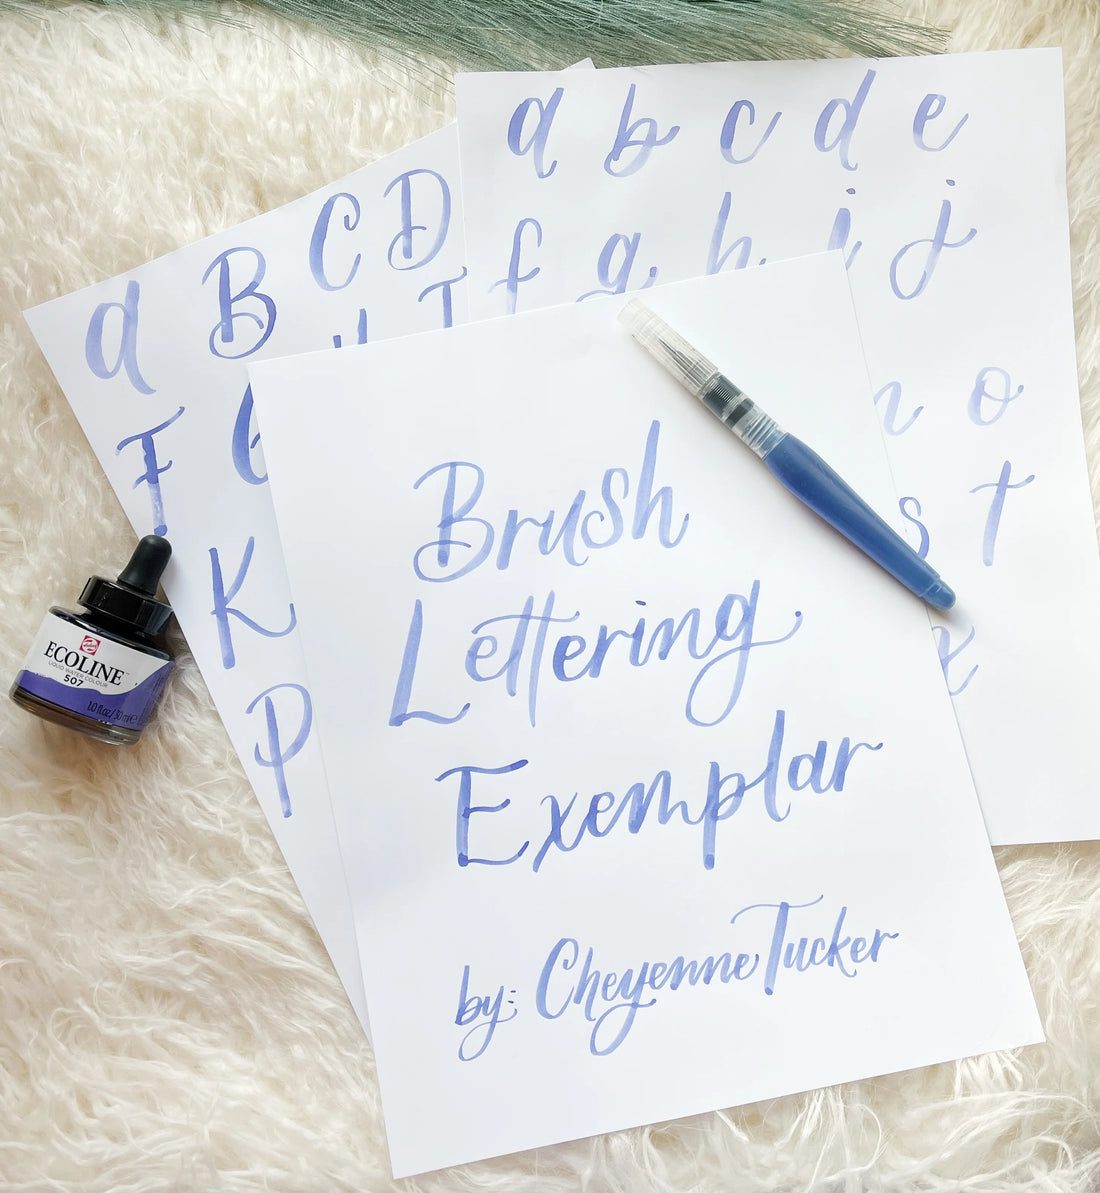 a b c d e
f g h i j
n o
s t
x
a B C D
F G
K
P
Brush
Lettering
Exemplar
by: Cheyenne Tucker
ECOLINE
LIQUID WATER COLOUR
507
1.0 fl oz/30 ml e